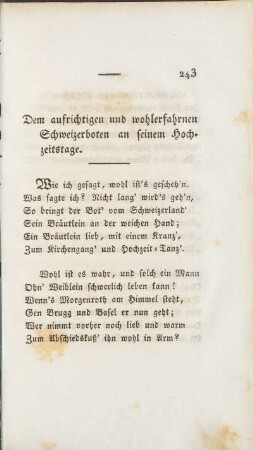 243
Dem aufrichtigen und wohlerfahrnen
Schweizerboten an seinem Hoch-
zeitstage.
Wie ich gesagt, wohl ist's gescheh'n.
Was sagte ich? Nicht lang' wird's geh'n,
So bringt der Bot' vom Schweizerland'
Sein Bräutlein an der weichen Hand;
Ein Bräutlein lieb, mit einem Kranz',
Zum Kirchengang' und Hochzeit-Tanz'.
Wohl ist es wahr, und solch ein Mann
Ohn' Weiblein schwerlich leben kann!
Wenn's Morgenroth am Himmel steht,
Gen Brugg und Basel er nun geht;
Wer nimmt vorher noch lieb und warm
Zum Abschiedskuß' ihn wohl in Arm?